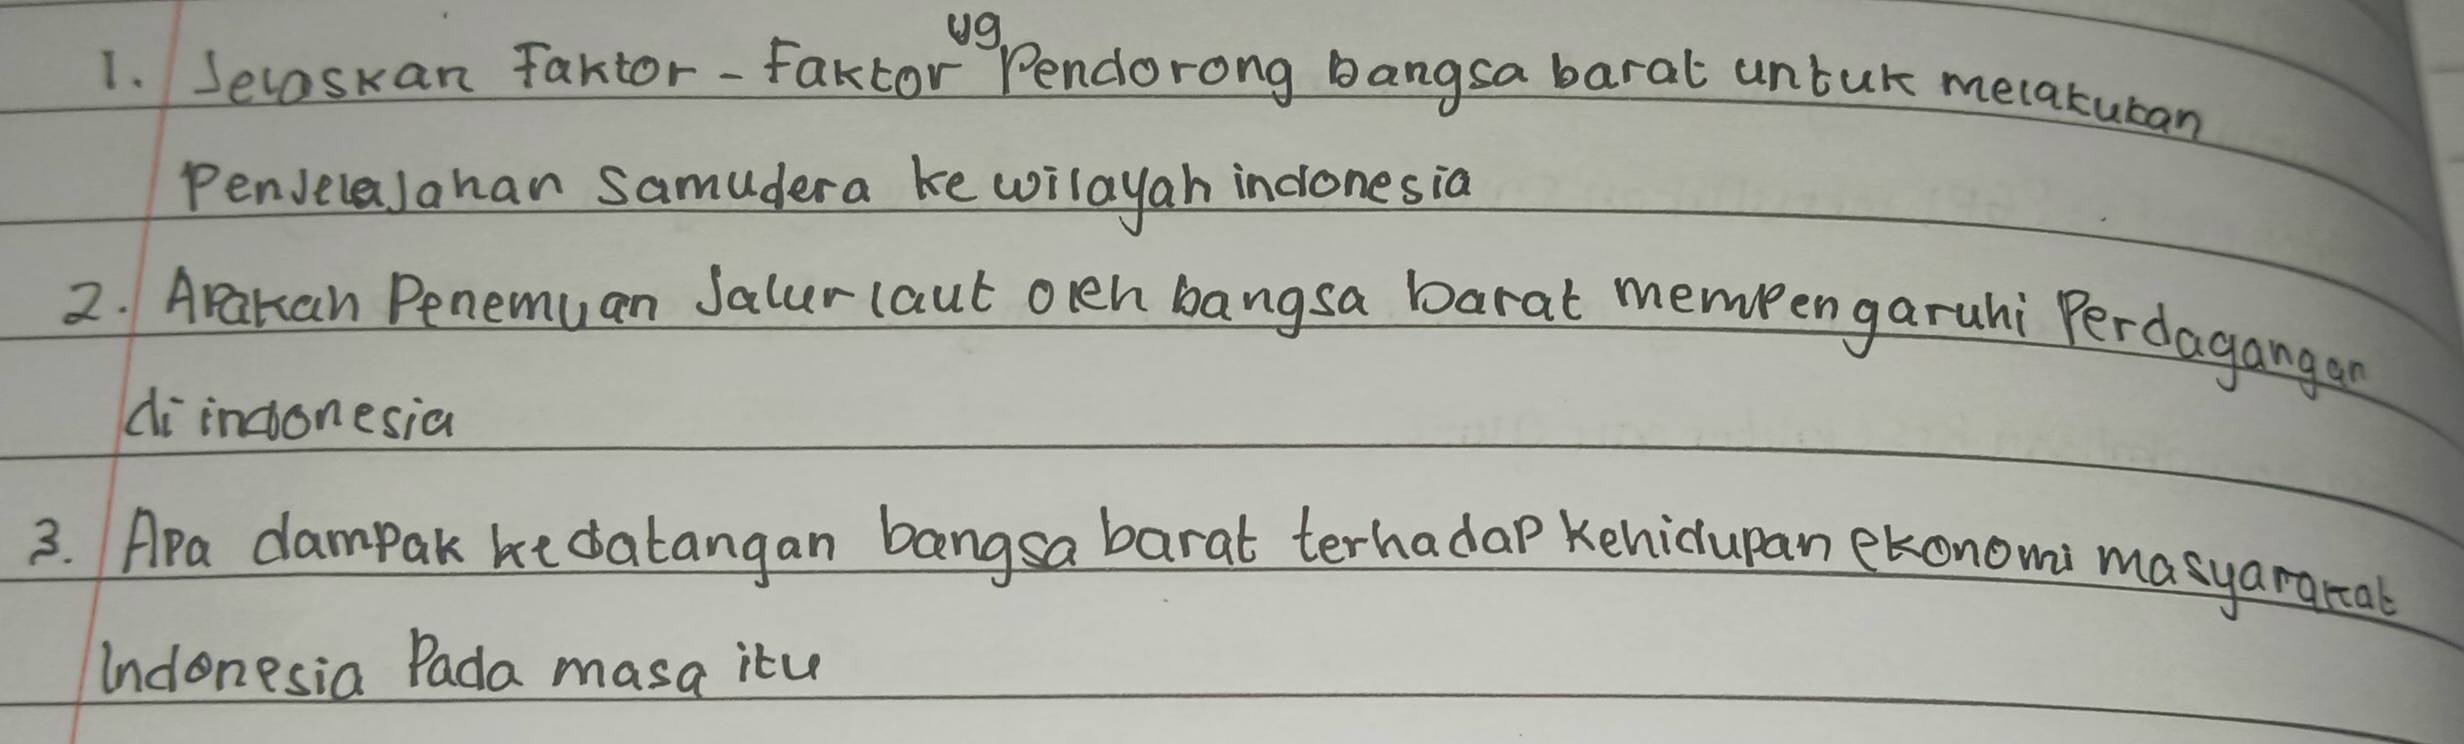 1. Jelaskan Faktor - Faktor yg Pendorong bangsa barat untuk melakukan
Penjelajahan Samudera ke wilayah indonesia
2. Apakah Penemuan Jalur laut oleh bangsa barat mempengaruhi Perdagangan
di indonesia
3. Apa dampak kedatangan bangsa barat terhadap kehidupan ekonomi masyarakat
Indonesia Pada masa itu